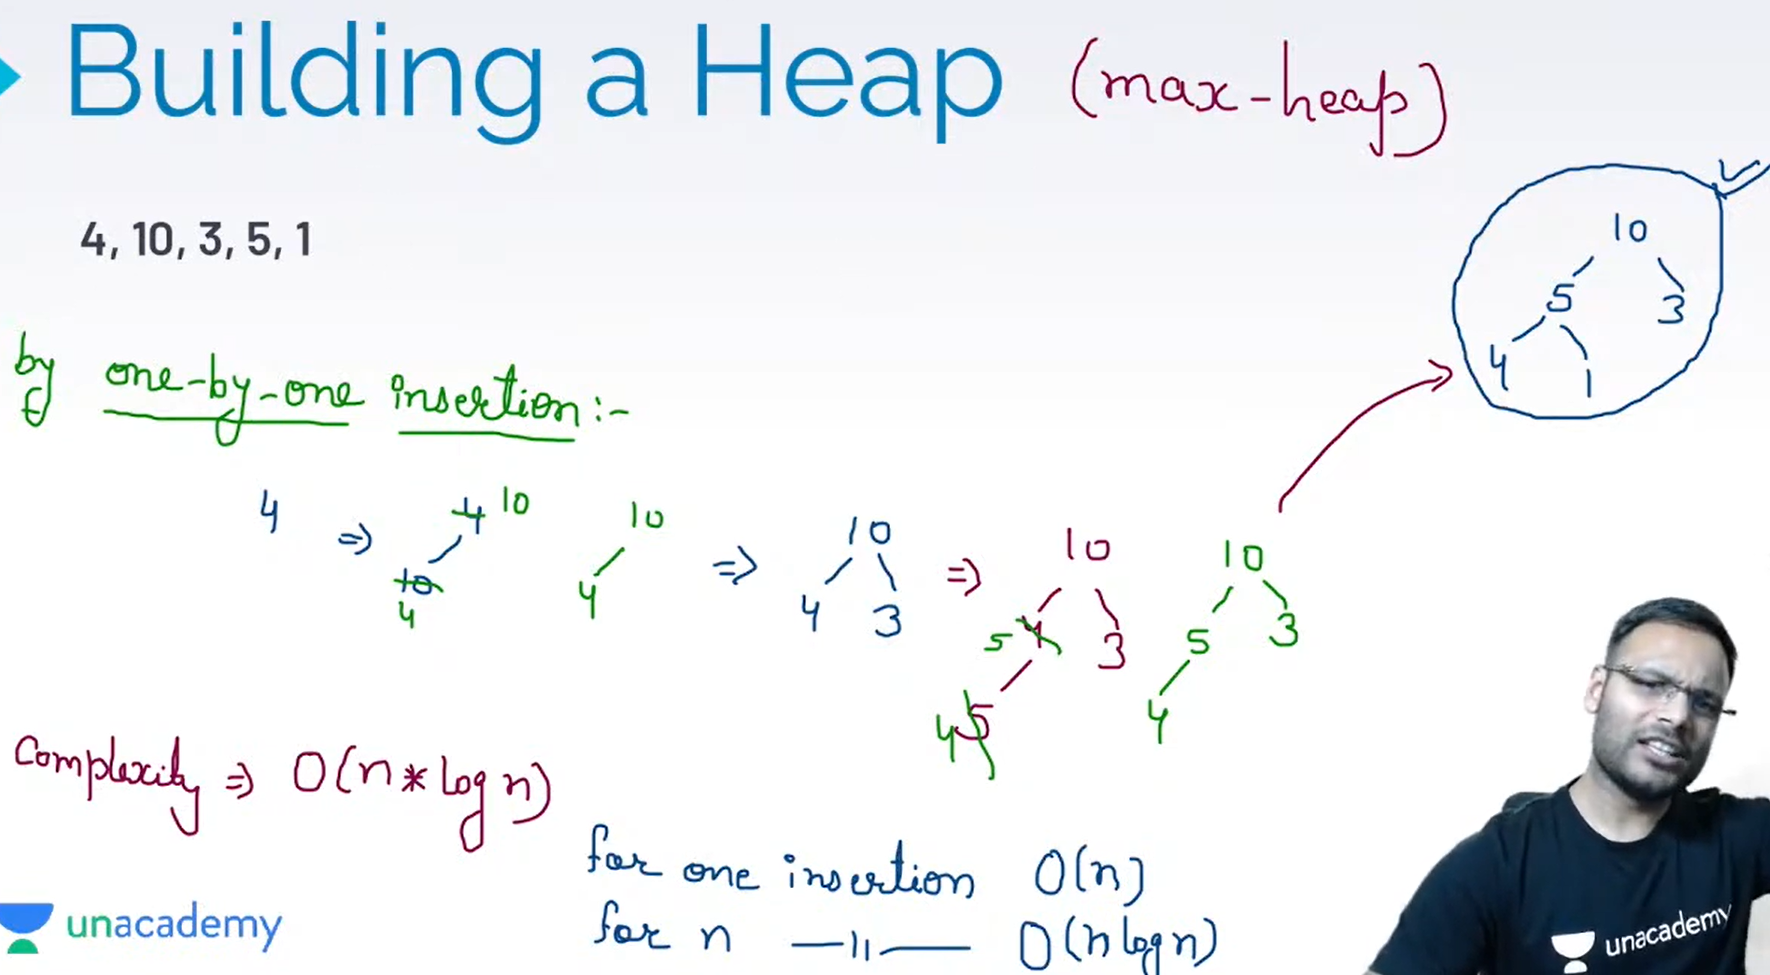 Building a Heap (max-heap)
4, 10, 3, 5, 1
10
5 3
4 1
by one-by-one insertion :-
4 => 4 10
10
4
10
4
=> 10
4 3
=> 10
5 4 3
4 5
10
5 3
4
Complexity => O(n * log n)
for one insertion O(n)
for n —11— O(n log n)
unacademy
unacademy